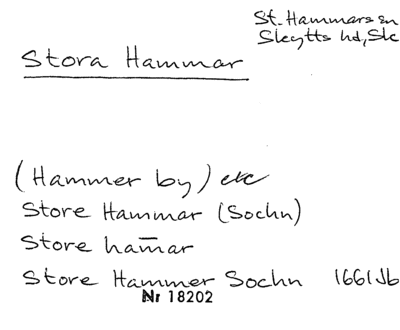 St. Hammars sn
Skytts hd, Sk
Stora Hammar
(Hammer by) etc
Store Hammar (Sochn)
Store ham̄ar
Store Hammer Sochn 1661 Jb
Nr 18202